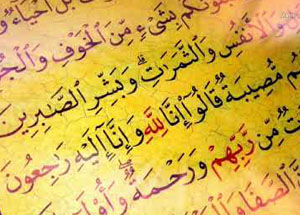 بل أحياء و
ونكم بشيء من الخوف والج
والأنفس والثمرت وبشر الصبرين
مصيبة قالوا إنا لله وإنا إليه رجعون
من ربهم ورحمة وأو
الصفا وال